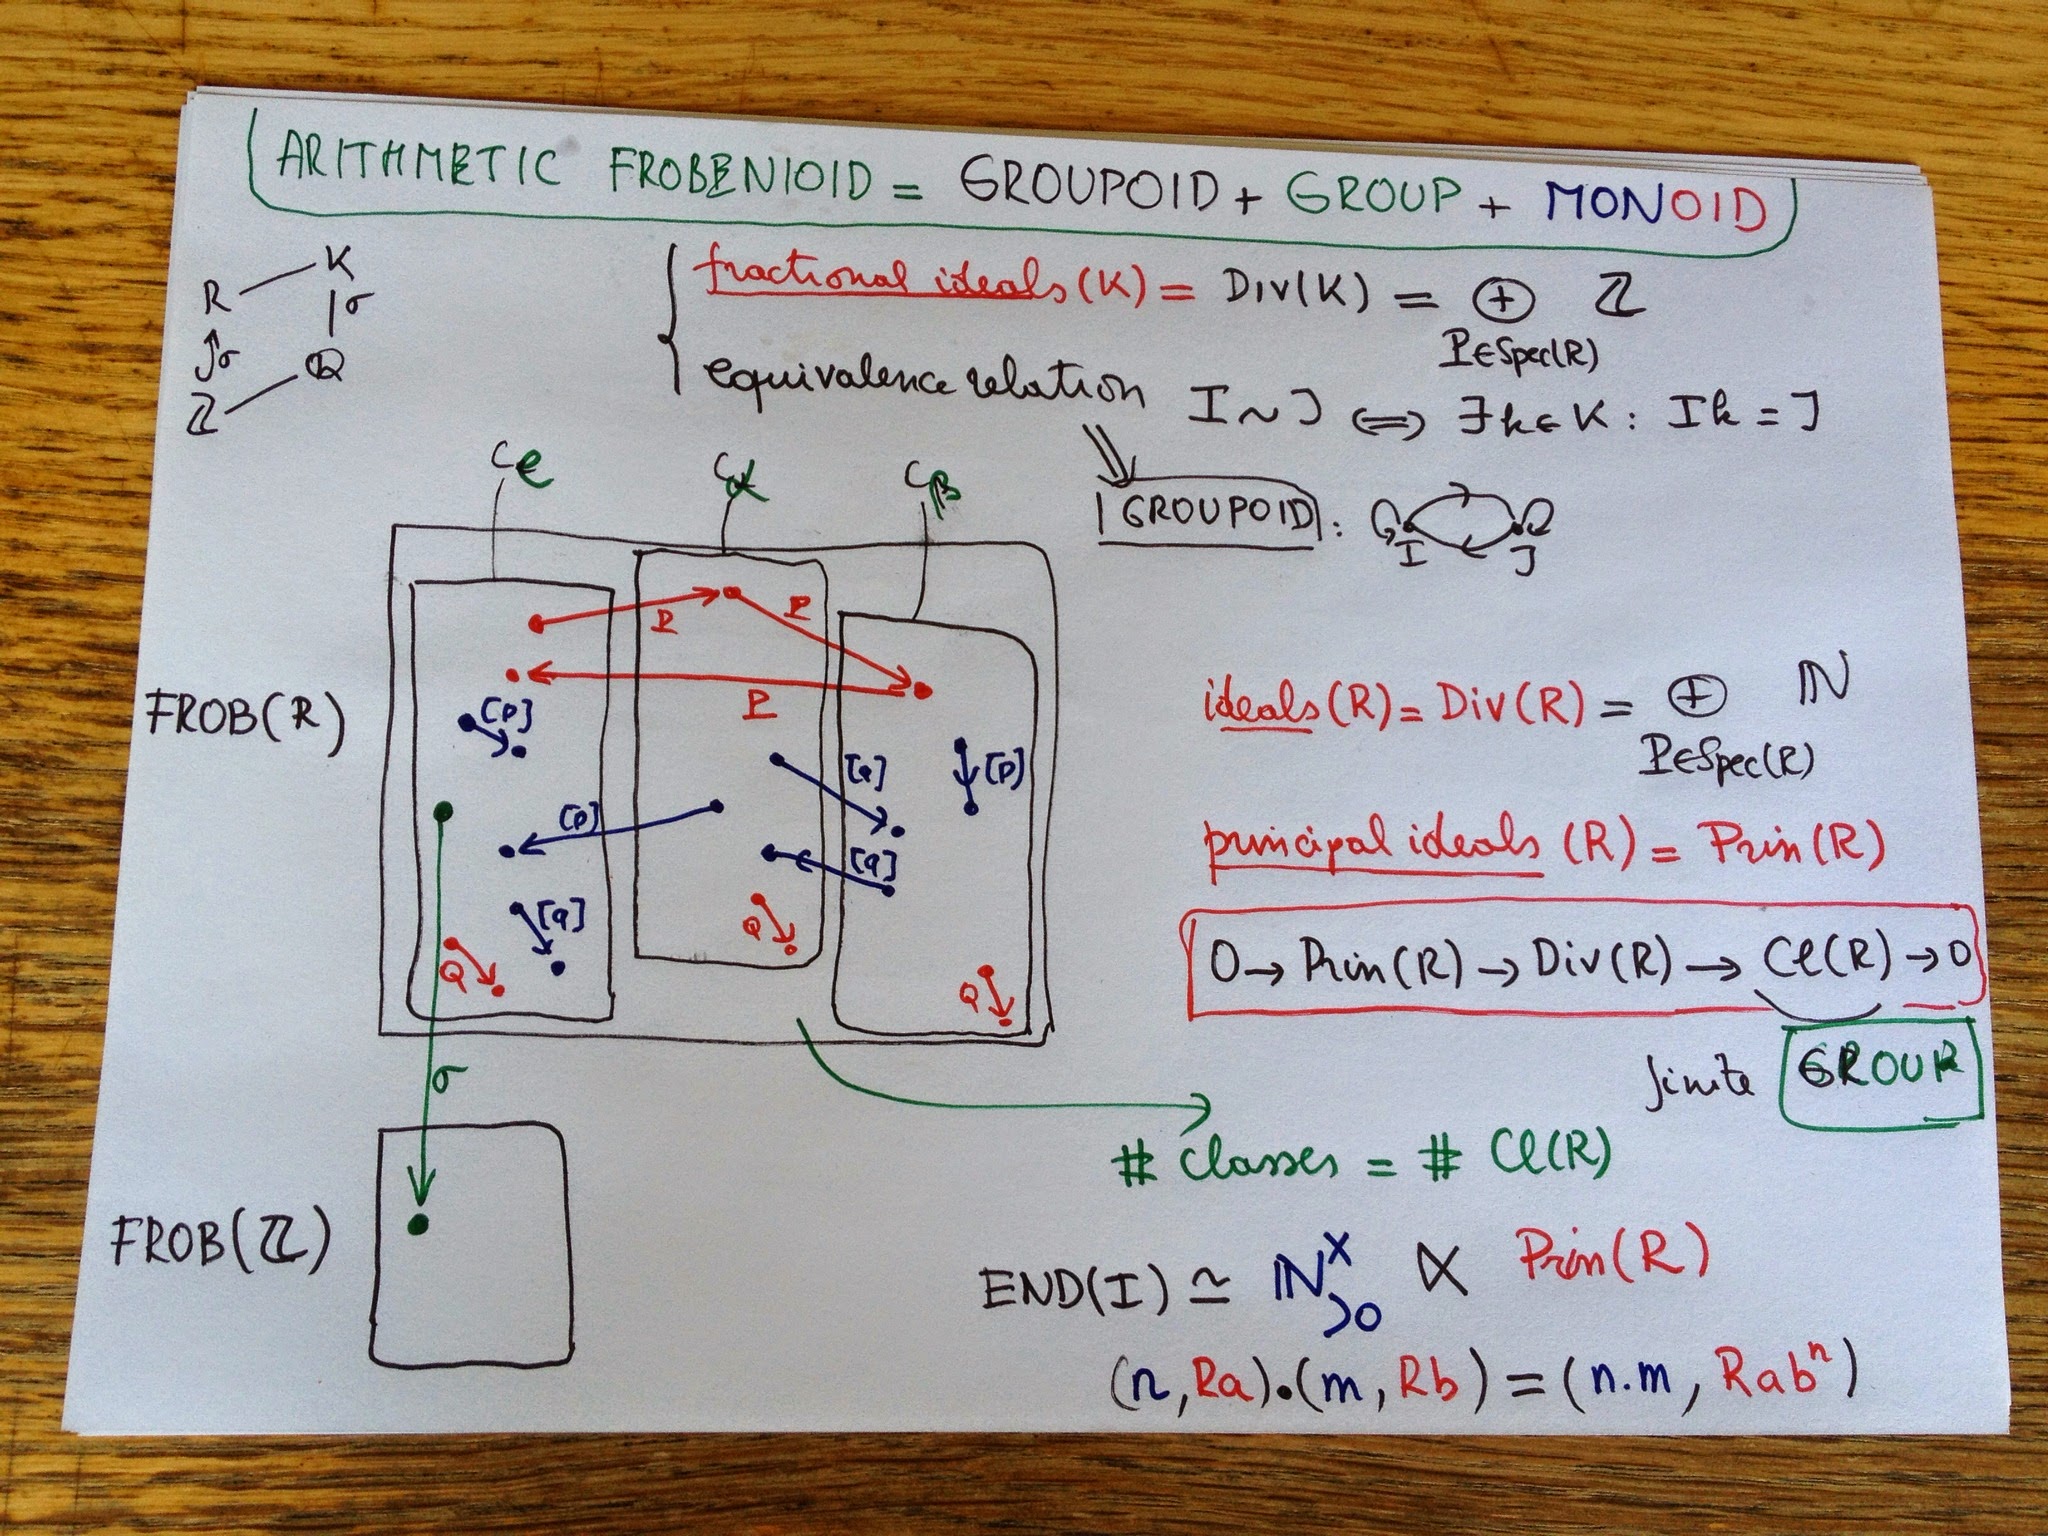 ARITHMETIC FROBENIOID = GROUPOID + GROUP + MONOID
K
R
σ
σ
Q
Z
fractional ideals (K) = Div(K) = ⊕ Z
P∈Spec(R)
equivalence relation I ~ J ⟺ ∃ k ∈ K : Ik = J
GROUPOID :
I J
Ce Cα Cβ
FROB(R)
P P
P
[p]
[q] [p]
[p] [q]
[q]
Q Q Q
ideals (R) = Div(R) = ⊕ N
P∈Spec(R)
principal ideals (R) = Prin(R)
0 → Prin(R) → Div(R) → Cl(R) → 0
finite GROUP
σ
# Classes = # Cl(R)
FROB(Z)
END(I) ≃ N^×_{>0} ⋉ Prin(R)
(n, Ra).(m, Rb) = (n.m, Rab^n)